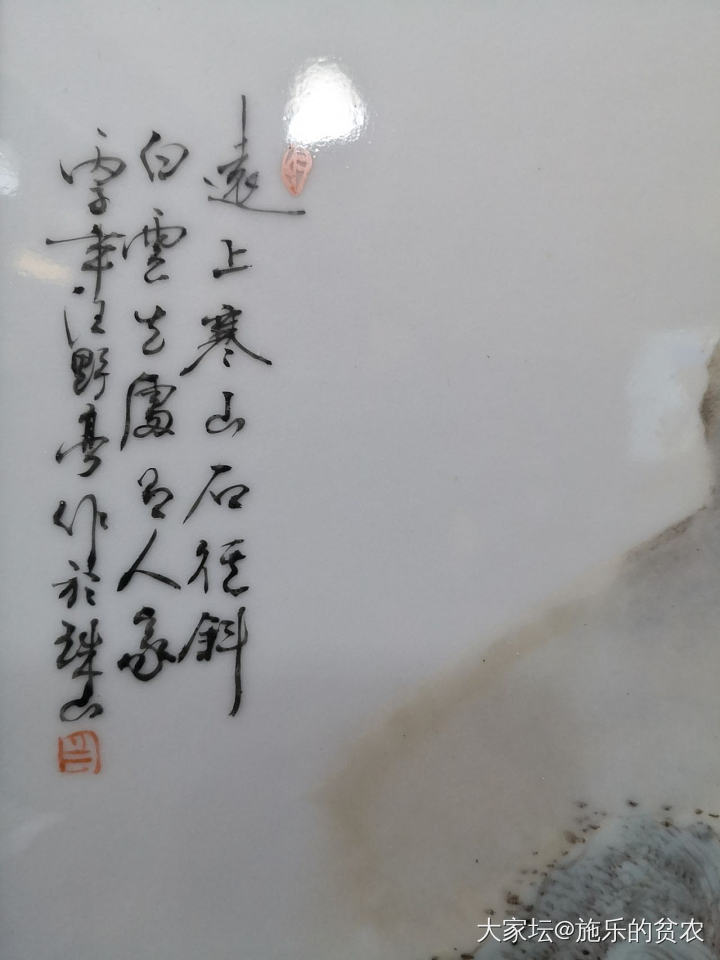 遠上寒山石徑斜
白雲生處有人家
汪野亭作於珠山
大家坛@施乐的贫农